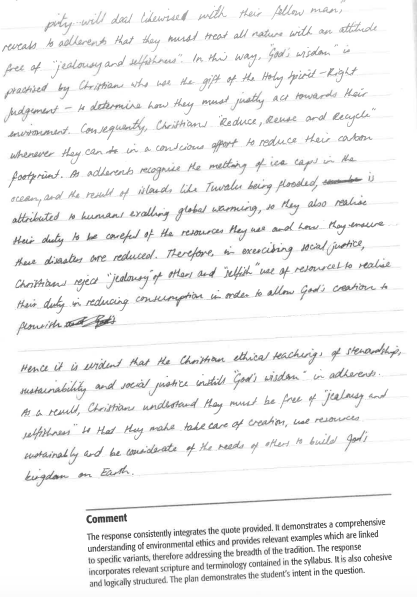 piety will deal likewised with their fellow man,"
reveals to adherents that they must treat all nature with an attitude
free of "jealousy and selfishness". In this way, God's wisdom" is
practised by Christians who use the gift of the Holy Spirit - Right
Judgement - to determine how they must justly act towards their
environment. Consequently, Christians "Reduce, Reuse and Recycle"
whenever they can in a conscious effort to reduce their carbon
footprint. As adherents recognise the melting of ice caps in the
ocean, and the result of islands like Tuvalu being flooded, is
attributed to humans exalling global warming, so they also realise
their duty to be careful of the resources they use and how they ensure
these disasters are reduced. Therefore, in exercising social justice,
Christians reject "jealousy" of others and "selfish" use of resources to realise
their duty in reducing consumption in order to allow God's creation to
flourish
Hence it is evident that the Christian ethical teachings of stewardship,
sustainability and social justice instils "God's wisdom" in adherents.
As a result, Christians understand they must be free of "jealousy and
selfishness" so that they make take care of creation, use resources
sustainably and be considerate of the needs of others to build God's
kingdom on Earth.
Comment
The response consistently integrates the quote provided. It demonstrates a comprehensive
understanding of environmental ethics and provides relevant examples which are linked
to specific variants, therefore addressing the breadth of the tradition. The response
incorporates relevant scripture and terminology contained in the syllabus. It is also cohesive
and logically structured. The plan demonstrates the student's intent in the question.